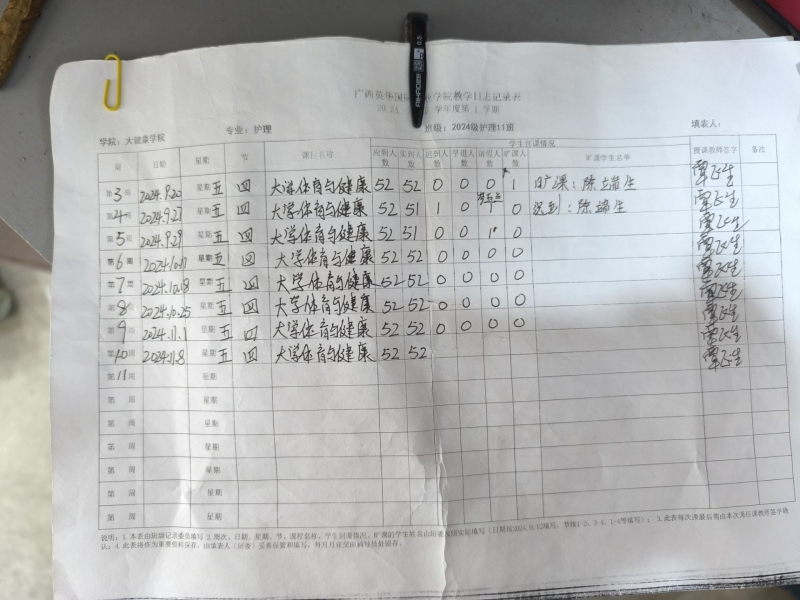 广西英华国际 学院教学日志记录表
2024 学年度第1学期
学院：大健康学院 专业：护理 班级：2024级护理11班 填表人：
周 日期 星期 节 课程名称 应到人数 实到人数 迟到人数 早退人数 请假人数 旷课人数 旷课学生名单 授课教师签字 备注
学生到课情况
第3周 2024.9.20 星期五 四 大学体育与健康 52 52 0 0 0 1 旷课：陈 生
第4周 2024.9.27 星期五 四 大学体育与健康 52 51 1 0 1 0 迟到：陈 生
第5周 2024.9.29 星期五 四 大学体育与健康 52 51 0 0 1 0
第6周 2024.10.11 星期五 四 大学体育与健康 52 52 0 0 0 0
第7周 2024.10.18 星期五 四 大学体育与健康 52 52 0 0 0 0
第8周 2024.10.25 星期五 四 大学体育与健康 52 52 0 0 0 0
第9周 2024.11.1 星期五 四 大学体育与健康 52 52 0 0 0 0
第10周 2024.11.8 星期五 四 大学体育与健康 52 52
第11周 星期
第 周 星期
第 周 星期
第 周 星期
第 周 星期
第 周 星期
第 周 星期
说明：1.本表由班级记录委员填写 2.周次、日期、星期、节、课程名称、学生到课情况、旷课的学生姓名由班委按照实际填写（日期按2024.9.10填写，节按1-2、3-4、1-4等填写）； 3.此表每次课最后需由本次课任课教师签字确
认；4.此表将作为重要资料保存，由填表人（班委）妥善保管和填写，每月月底交由